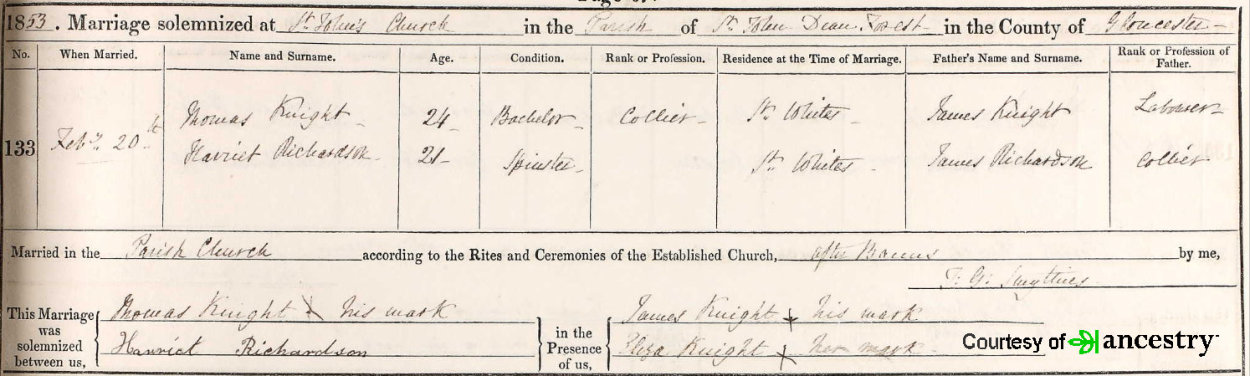 1853. Marriage solemnized at St. John's Church in the Parish of St. John Dean Forest in the County of Gloucester
No. When Married. Name and Surname. Age. Condition. Rank or Profession. Residence at the Time of Marriage. Father's Name and Surname. Rank or Profession of Father.
133 Feby. 20th Thomas Knight 24 Bachelor Collier St. Whites James Knight Labourer
Harriet Richardson 21 Spinster St. Whites James Richardson Collier
Married in the Parish Church according to the Rites and Ceremonies of the Established Church, after Banns by me,
This Marriage was solemnized between us, Thomas Knight X his mark in the Presence of us, James Knight X his mark
Harriet Richardson Eliza Knight X her mark
Courtesy of ancestry